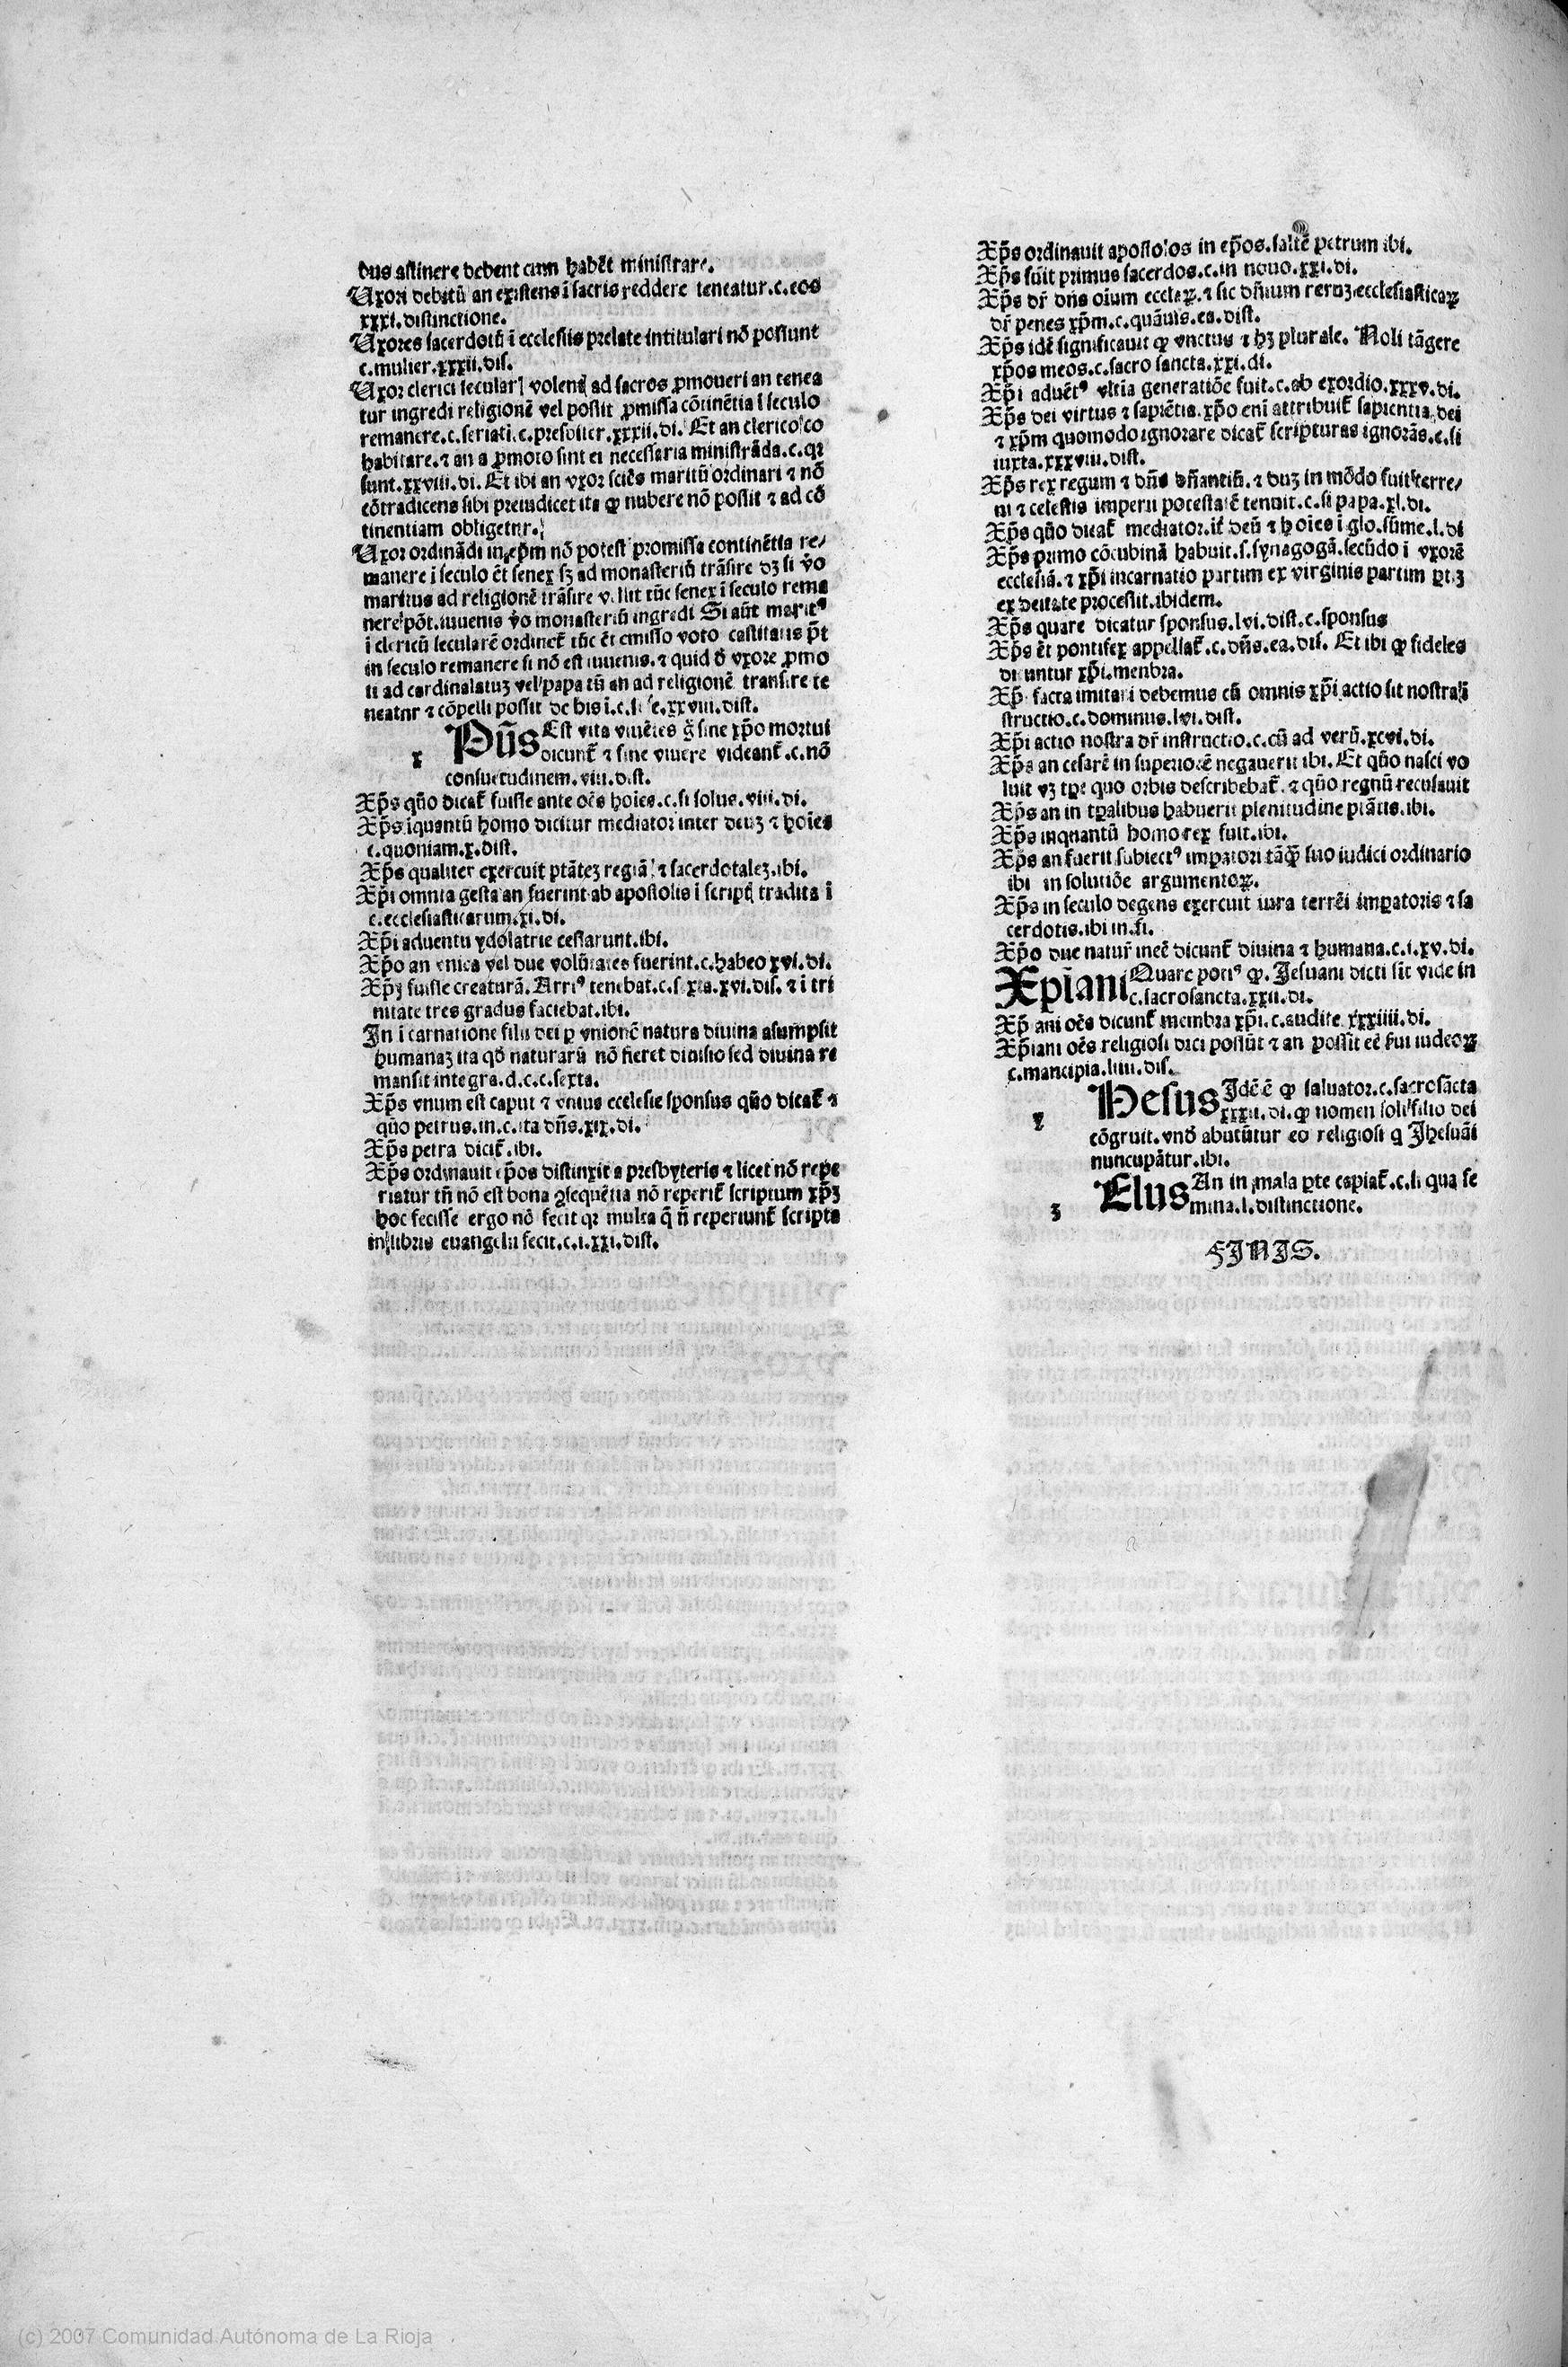 bus astinere debent cum habēt ministrare.
Uxori debitū an existens ī sacris reddere teneatur.c.eos
xxxi.distinctione.
Uxores sacerdotū ī ecclesiis prelate intitulari nō possunt
c.mulier.xxxii.dis.
Uxor clerici secular volens ad sacros ꝓmoueri an tenea
tur ingredi religionē vel possit ꝓmissa cōtinētia ī seculo
remanere.c.seriatī.c.presbiter.xxxii.di. Et an clerico co
habitare.⁊ an a ꝓmoto sint ei necessaria ministrāda.c.qꝛ
sunt.xxviii.di. Et ibi an vxor sciēs maritū ordinari ⁊ nō
cōtradicens sibi preiudicet ita ꝙ nubere nō possit ⁊ ad cō
tinentiam obligetur.
Uxor ordinādi in ep̄m nō potest promissa continētia re/
manere ī seculo ēt senex sꝫ ad monasteriū trāsire dꝫ si v̄o
maritus ad religionē trāsire vellit tūc senex ī seculo rema
nere pōt.iuuenis v̄o monasteriū ingredi Si aūt marit⁹
ī clericū secularē ordinet᷑ tūc ēt emisso voto castitatis p̄t
in seculo remanere si nō est iuuenis.⁊ quid d̄ vxore ꝓmo
ti ad cardinalatuꝫ vel papa tū an ad religionē transire te
neatur ⁊ cōpelli possit de his ī.c.si .e.xxviii.dist.
x Pūs Est vita viuētes g̈ sine xp̄o mortui
dicunt᷑ ⁊ sine viuere videant᷑.c.nō
consuetudinem.viii.dist.
Xp̄s quō dicat᷑ fuisse ante oēs hoīes.c.si solus.viii.di.
Xp̄s īquantū homo dicitur mediator inter deuꝫ ⁊ hoīes
c.quoniam.x.dist.
Xp̄s qualiter exercuit ptāteꝫ regiā ⁊ sacerdotaleꝫ.ibi.
Xp̄i omnia gesta an fuerint ab apostolis ī script tradita ī
c.ecclesiasticarum.xi.di.
Xp̄i aduentu ydolatrie cessarunt.ibi.
Xp̄o an vnica vel due volūtates fuerint.c.habeo xvi.di.
Xp̄ꝫ fuisse creaturā. Arri⁹ tenebat.c.sexta.xvi.dis. ⁊ ī tri
nitate tres gradus faciebat.ibi.
In īcarnatione filii dei ꝑ vnionē natura diuina asumpsit
humanaꝫ ita qd̄ naturarū nō fieret diuisio sed diuina re
mansit integra.d.c.c.sexta.
Xp̄s vnum est caput ⁊ vnius ecclesie sponsus quō dicat᷑ ⁊
quō petrus.in.c.ita dn̄s.xix.di.
Xp̄s petra dicit᷑.ibi.
Xp̄s ordinauit ep̄os distinxit a presbyteris ⁊ licet nō repe
riatur tn̄ nō est bona ꝯsequētia nō reperit᷑ scriptum xp̄ꝫ
hoc fecisse ergo nō fecit qꝛ multa q̄ n̄ reperiunt᷑ scripta
in libris euangelii fecit.c.i.xxi.dist.
Xp̄s ordinauit apostolos in ep̄os.saltē petrum ibi.
Xp̄s fūit primus sacerdos.c.in nouo.xxi.di.
Xp̄s dr̄ dn̄s oīum eccleꝝ.⁊ sic dn̄ium reruꝫ ecclesiasticaꝝ
dr̄ penes xp̄m.c.quāuis.ea.dist.
Xp̄s idē significauit ꝙ vnctus ⁊ hꝫ plurale. Noli tāgere
xp̄os meos.c.sacro sancta.xxi.di.
Xp̄i aduēt⁹ vltīa generatiōe fuit.c.ab exordio.xxxv.di.
Xp̄s dei virtus ⁊ sapiētia.xp̄o enī attribuit᷑ sapientia dei
⁊ xp̄m quomodo ignorare dicat᷑ scripturas ignorās.c.si
iuxta.xxxviii.dist.
Xp̄s rex regum ⁊ dn̄s dn̄antiū.⁊ duꝫ in mōdo fuit terre/
ni ⁊ celestis imperii potestatē tenuit.c.si papa.xl.di.
Xp̄s quō dicat᷑ mediator.it᷑ deū ⁊ hoīes ī glo.sūme.l.di
Xp̄s primo cōcubinā habuit.s.synagogā.secūdo ī vxorē
ecclesiā.⁊ xp̄i incarnatio partim ex virginis partim ꝑt.ꝫ
ex deitate processit.ibidem.
Xp̄s quare dicatur sponsus.lvi.dist.c.sponsus
Xp̄s ēt pontifex appellat᷑.c.dn̄s.ea.dis. Et ibi ꝙ fideles
dicuntur xp̄i.menbra.
Xp̄i facta imitari debemus cū omnis xp̄i actio sit nostra ī
structio.c.dominus.lvi.dist.
Xp̄i actio nostra dr̄ instructio.c.cū ad verū.xcvi.di.
Xp̄s an cesarē in superiorē negauerit ibi. Et quō nasci vo
luit vꝫ tꝑe quo orbis describebat᷑.⁊ quō regnū recusauit
Xp̄s an in tꝑalibus habuerit plenitudinē ptātis.ibi.
Xp̄s inquantū homo rex fuit.ibi.
Xp̄s an fuerit subiect⁹ imꝑatori tāꝙ̄ suo iudici ordinario
ibi in solutiōe argumentoꝝ.
Xp̄s in seculo degens exercuit iura terrēi imꝑatoris ⁊ sa
cerdotis.ibi in.fi.
Xp̄o due natur̄ ineē dicunt᷑ diuina ⁊ humana.c.i.xv.di.
Xp̄iani Quare poti⁹ ꝙ. Iesuani dicti sīt vide in
c.sacrosancta.xxii.di.
Xp̄iani oēs dicunt᷑ membra xp̄i.c.audite.xxxiiii.di.
Xp̄iani oēs religiosi dici possūt ⁊ an possīt eē s̄ui iudeoꝝ
c.mancipia.liiii.dis.
y Hesus Idē ē ꝙ saluator.c.sacrosācta
xxxii.di.ꝙ nomen soli filio dei
cōgruit.vnd̄ abutūtur eo religiosi q Jhesuāi
nuncupātur.ibi.
z Elus An in mala ꝑte capiat᷑.c.li qua se
mina.l.distinctione.
FINIS.
(c) 2007 Comunidad Autónoma de La Rioja